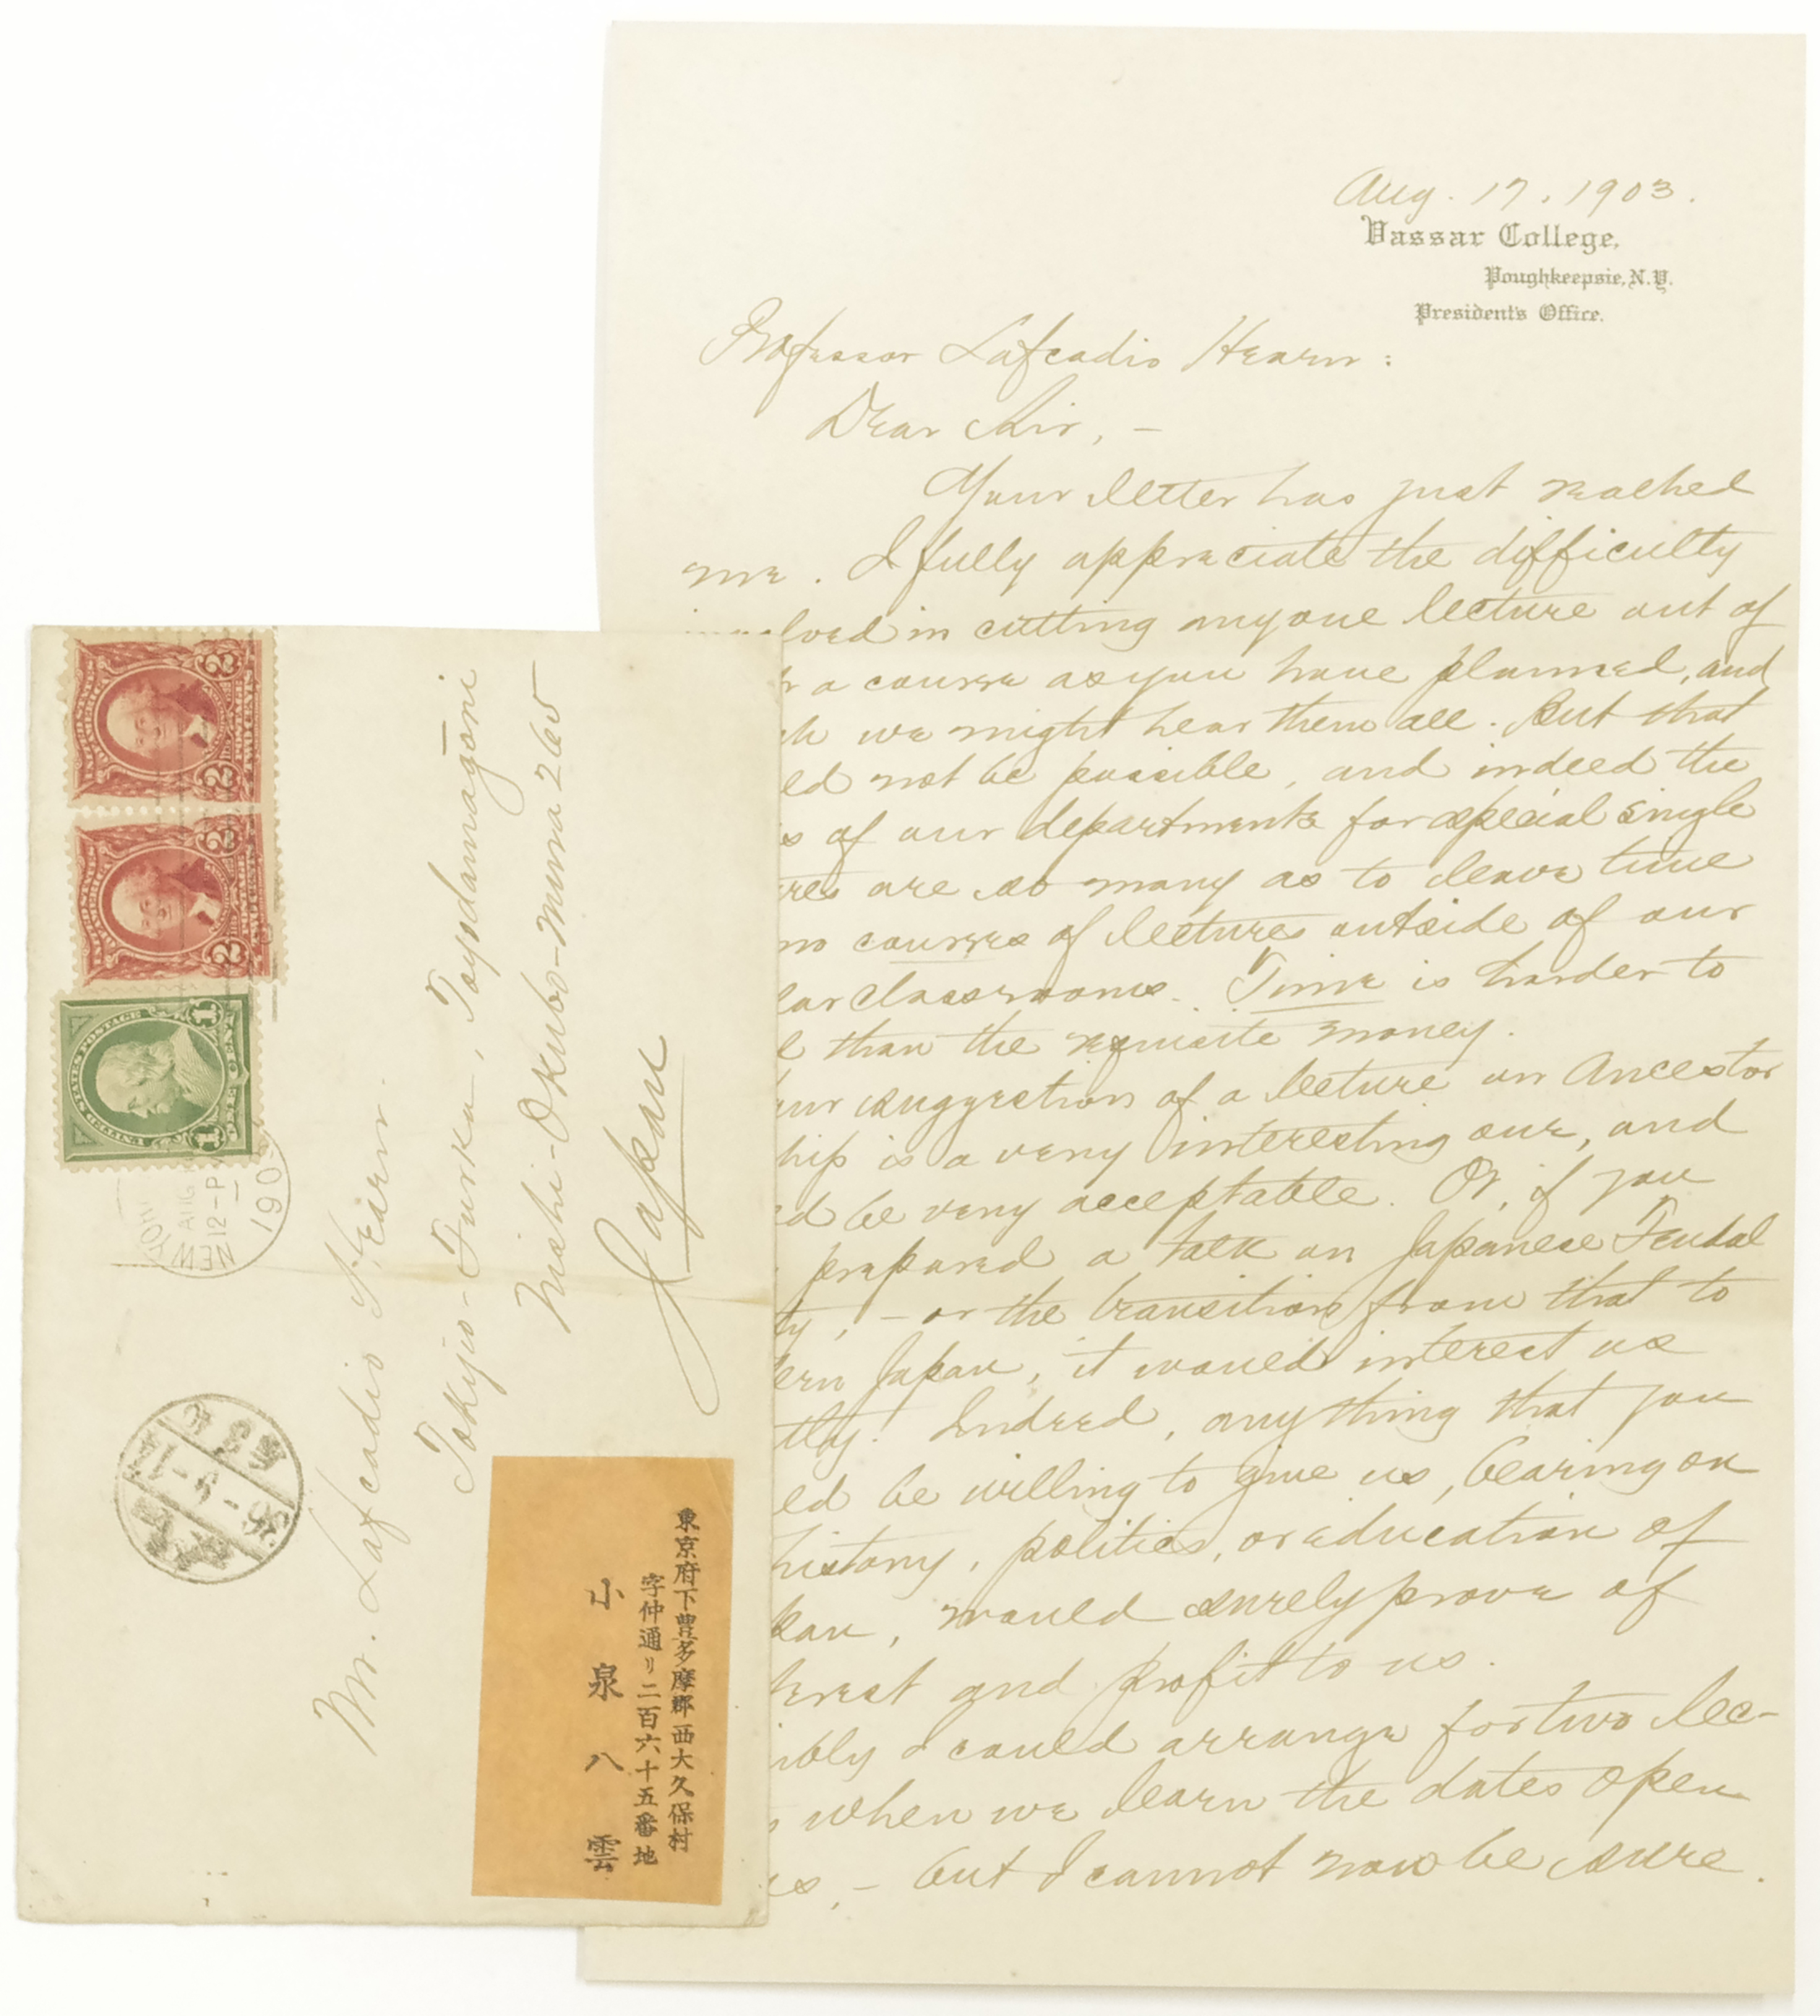 Aug. 17, 1903.
Vassar College,
Poughkeepsie, N.Y.
President's Office.
Professor Lafcadio Hearn:
Dear Sir, —
Your letter has just reached
me. I fully appreciate the difficulty
in cutting any one lecture out of
a course as you have planned, and
we might hear them all. But that
not be possible, and indeed the
of our departments for special single
are so many as to leave time
no courses of lectures outside of our
classrooms. Time is harder to
than the requisite money.
suggestion of a lecture on Ancestor
is a very interesting one, and
be very acceptable. Or, if you
prepared a talk on Japanese Feudal
, — or the transition from that to
Japan, it would interest us
Indeed, anything that you
be willing to give us, bearing on
history, politics, or education of
, would surely prove of
and profit to us.
I could arrange for two lec-
when we learn the dates open
, — but I cannot now be sure.
Mr. Lafcadio Hearn.
Tokyo-Tunka, Toyodamagōri
Nishi-Okubo-Mura 265
Japan
UNITED STATES POSTAGE
ONE CENT
1
1
2
2
2
2
NEW
AUG
12-P
190
東京府下豊多摩郡西大久保村
字仲通リ二百六十五番地
小泉八雲